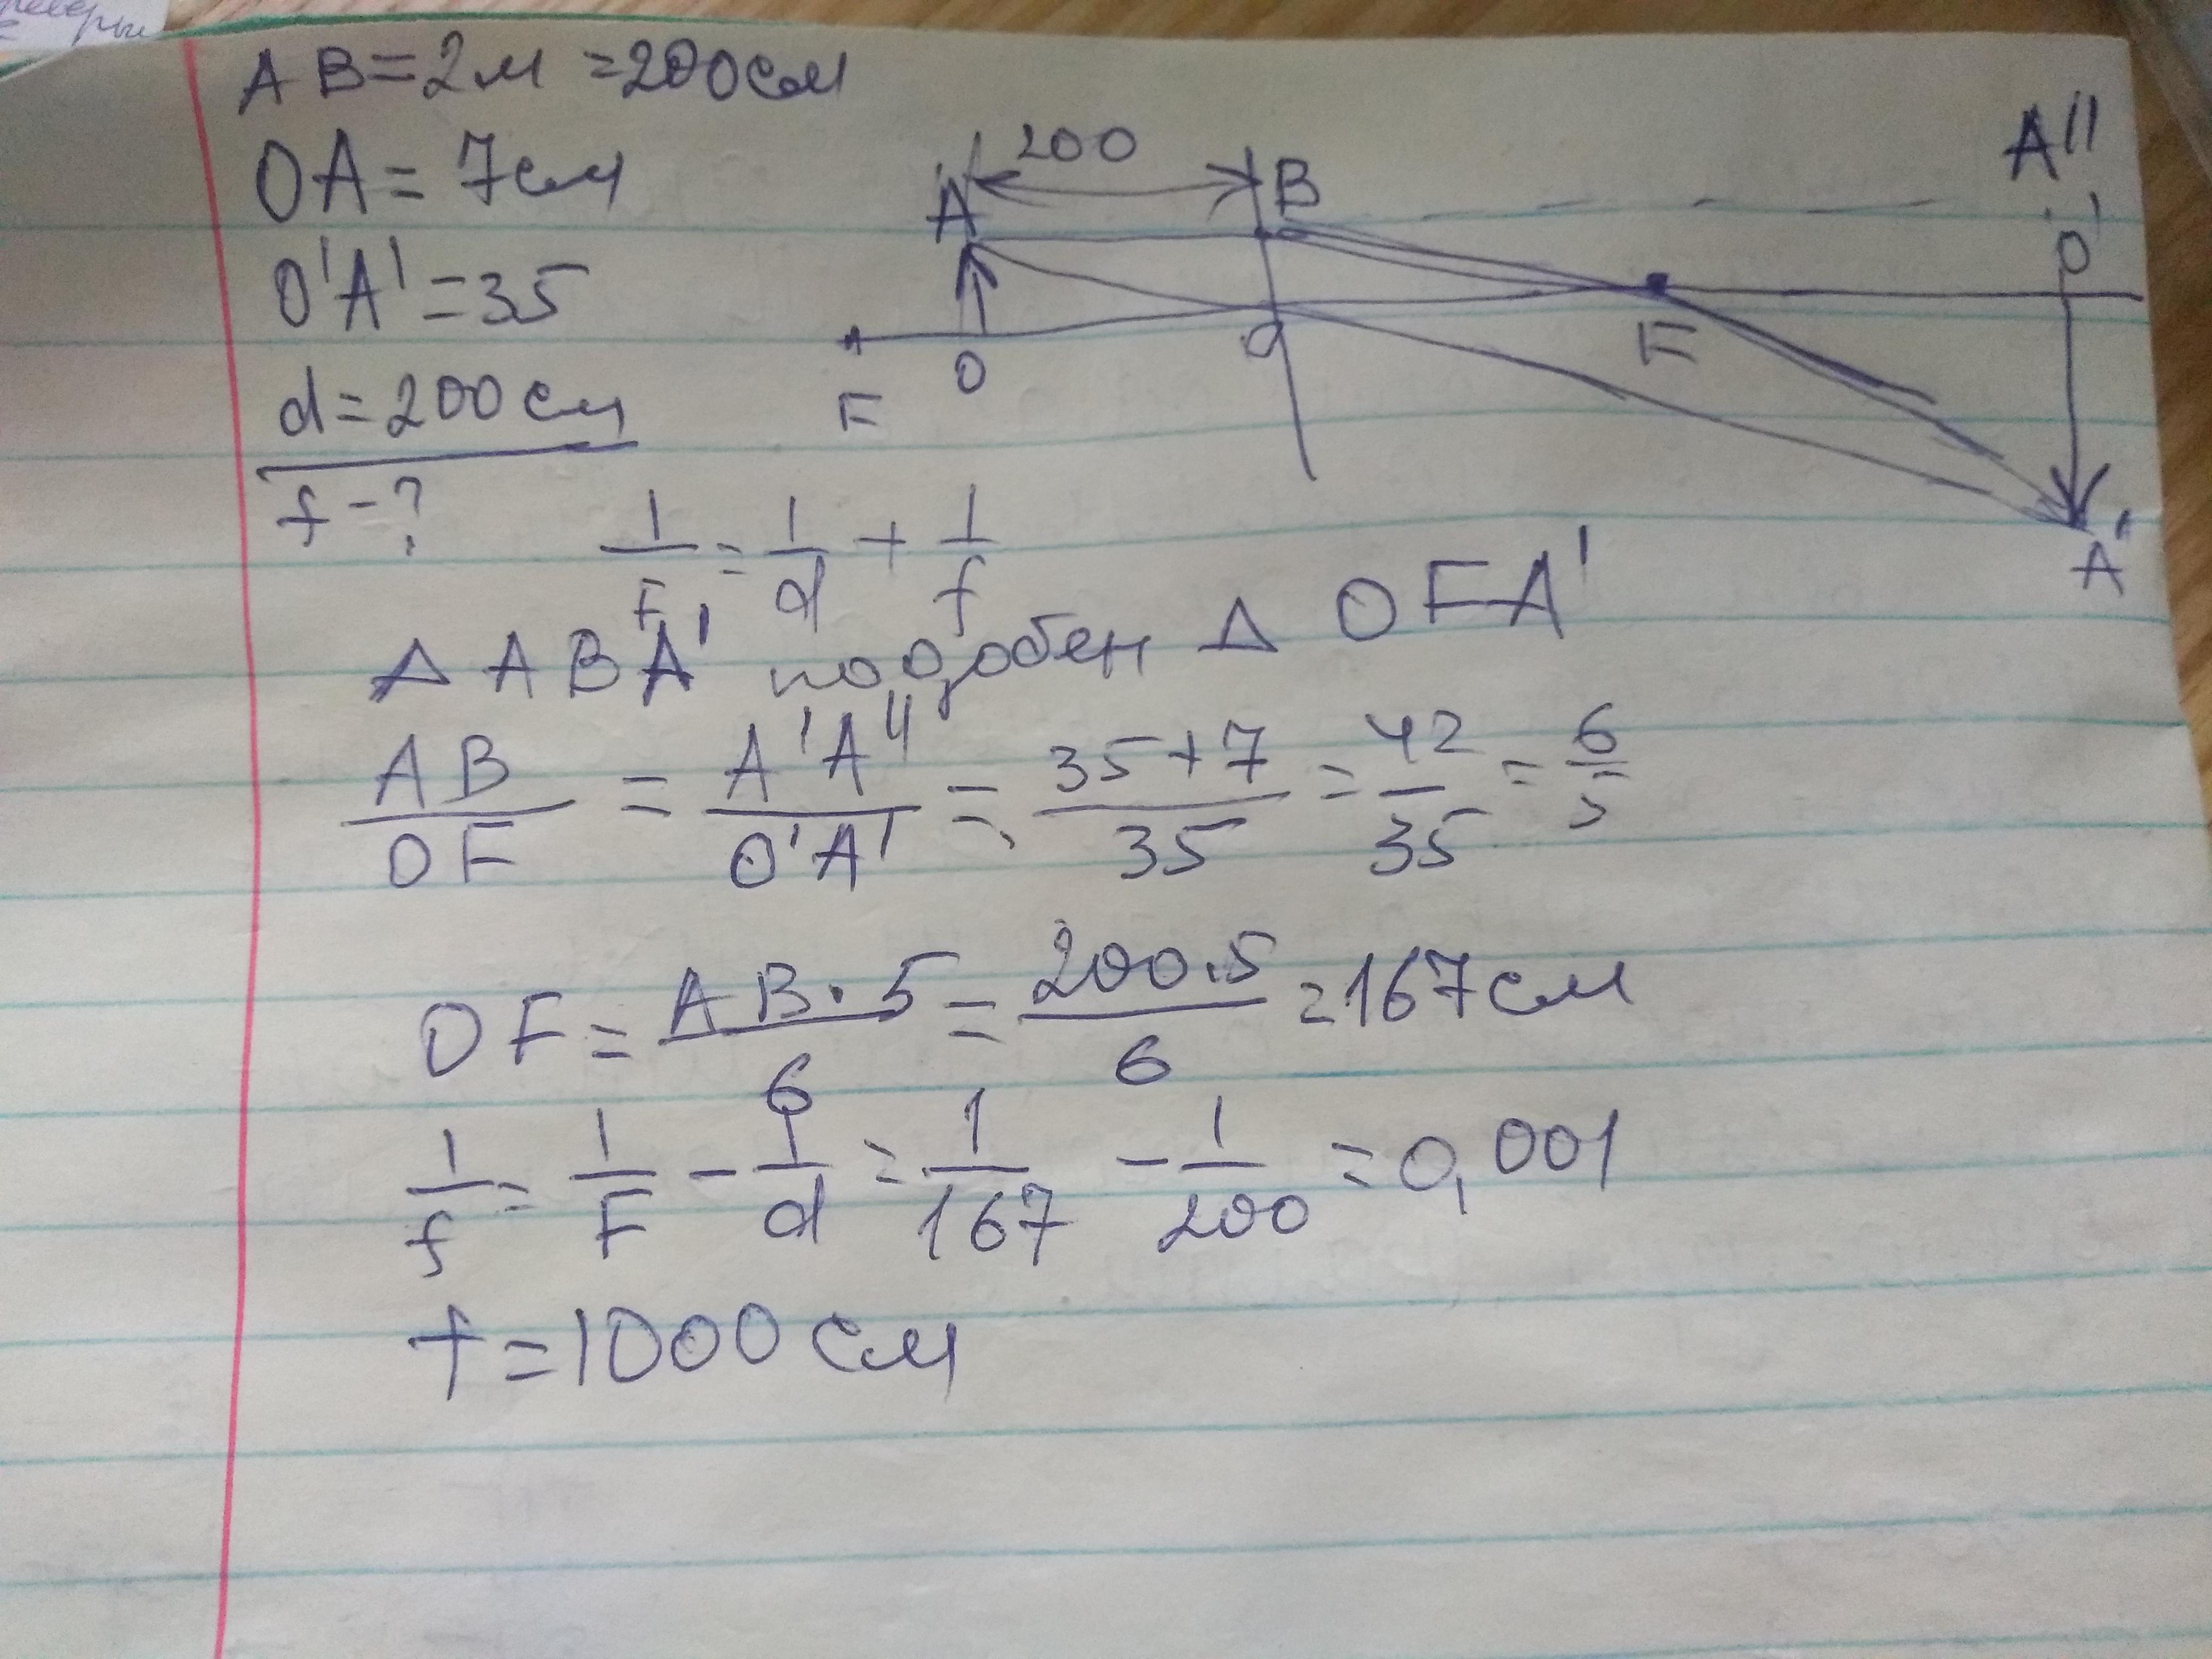 AB=2м =200см
OA= 7см
O'A'=35
d=200см
f-?
200
A
B
A''
O'
F
O
O
F
A'
1/F = 1/d + 1/f
Δ ABA' подобен Δ OFA'
AB/OF = A'A''/O'A' = 35+7/35 = 42/35 = 6/5
OF = AB·5/6 = 200·5/6 =167см
1/f = 1/F - 1/d = 1/167 - 1/200 = 0,001
f=1000см